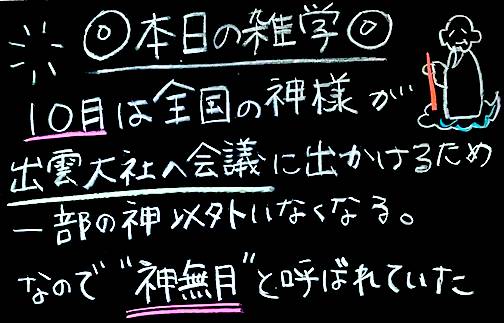 ◎本日の雑学◎
10月は全国の神様が
出雲大社へ会議に出かけるため
一部の神以外いなくなる。
なので"神無月"と呼ばれていた